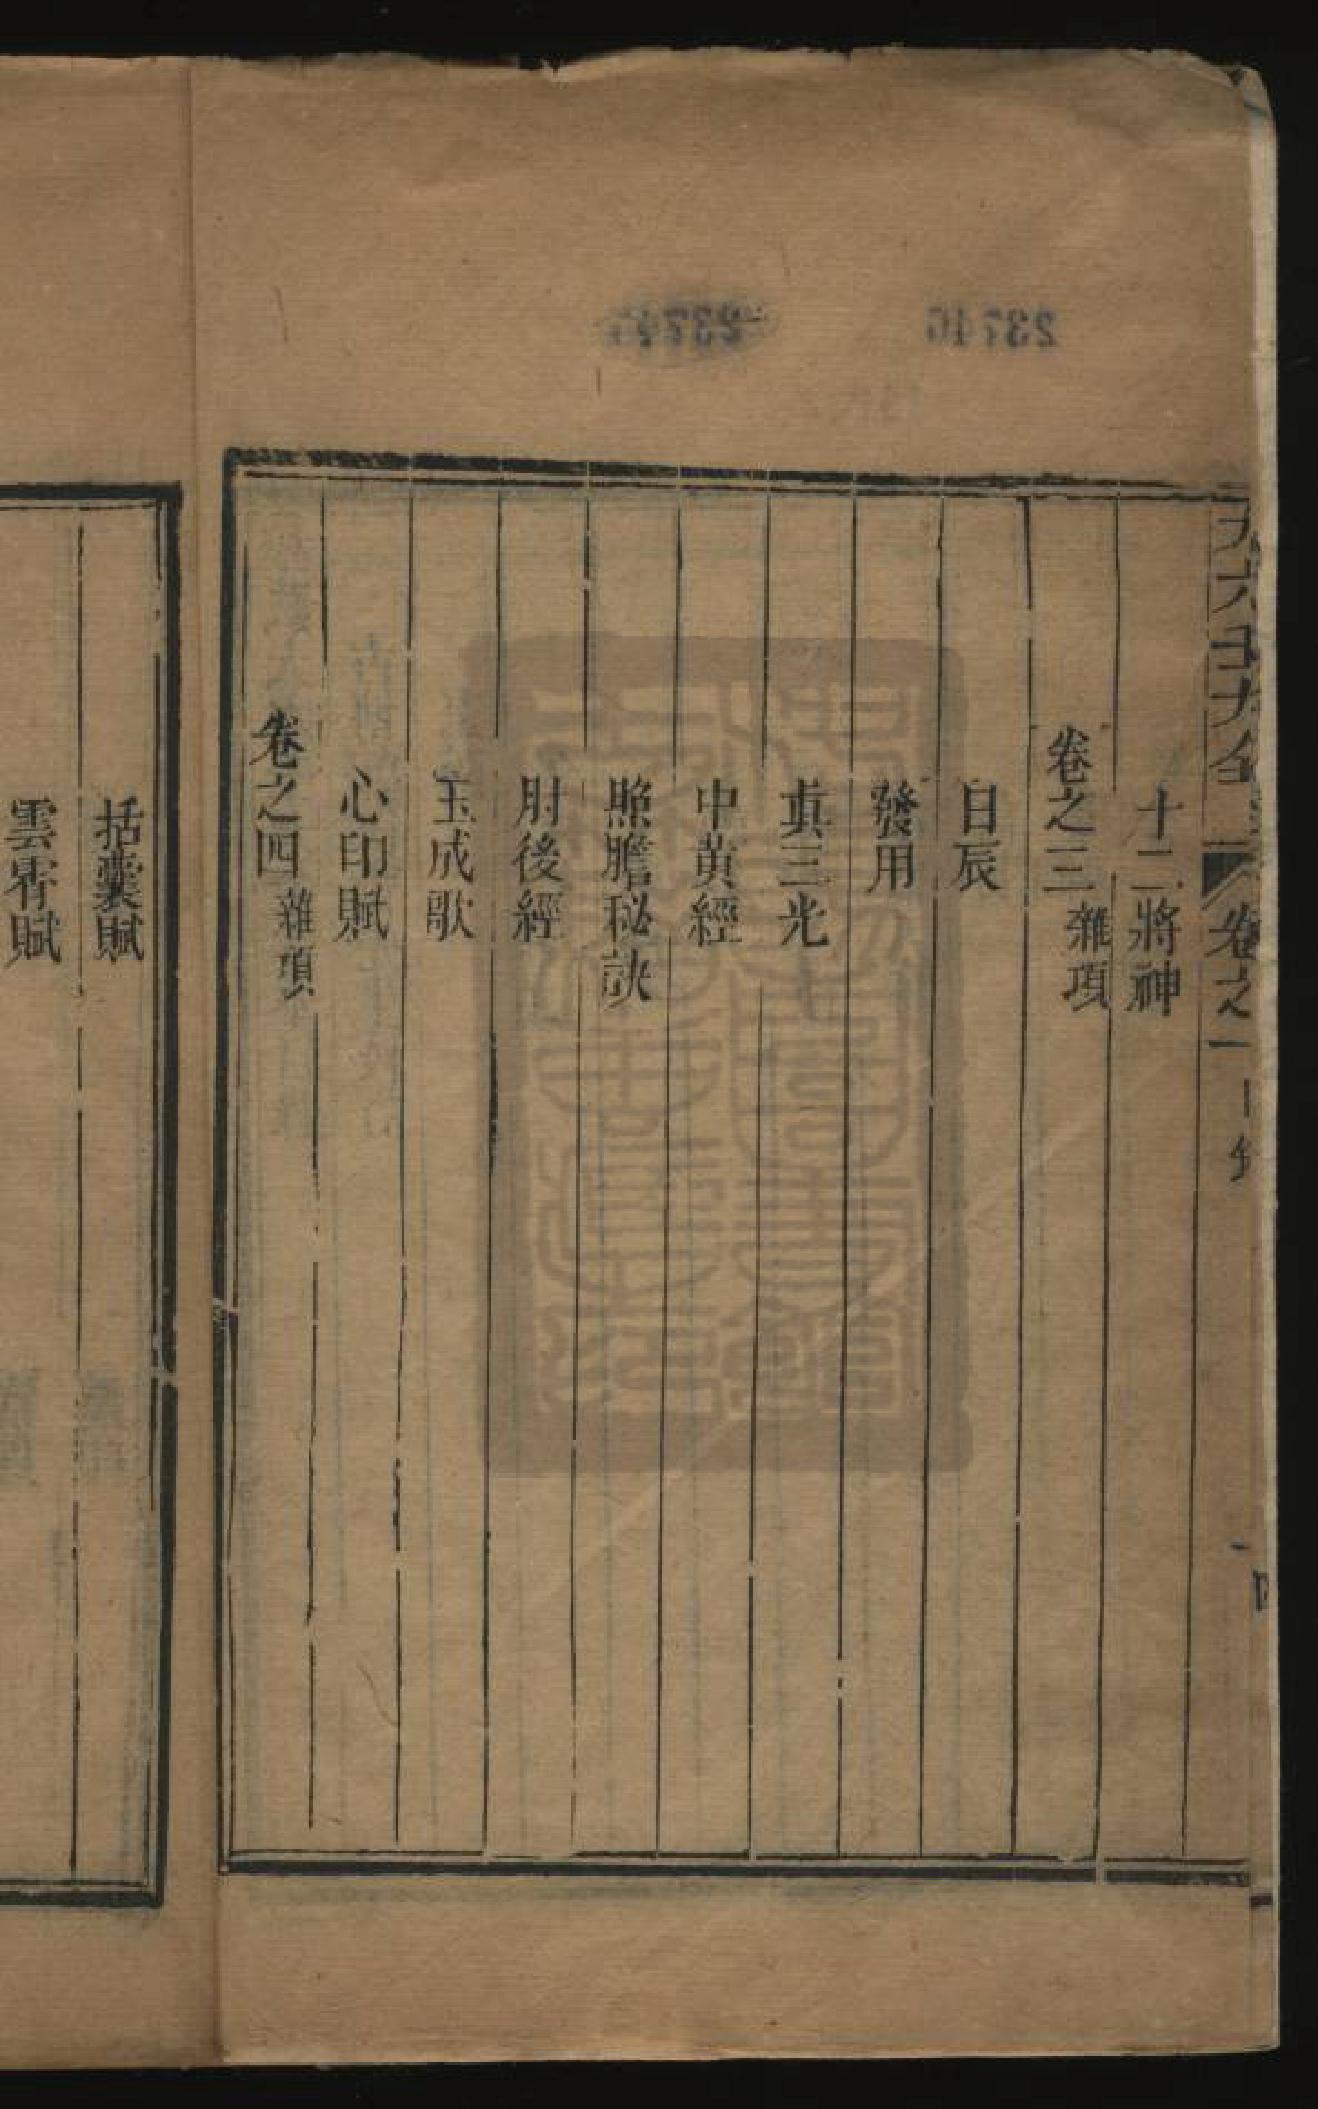 大六壬大全 卷之一 目錄
十二將神
卷之三 雜項
日辰
發用
眞三光
中黃經
照膽秘訣
肘後經
玉成歌
心印賦
卷之四 雜項
括囊賦
雲霄賦
23746